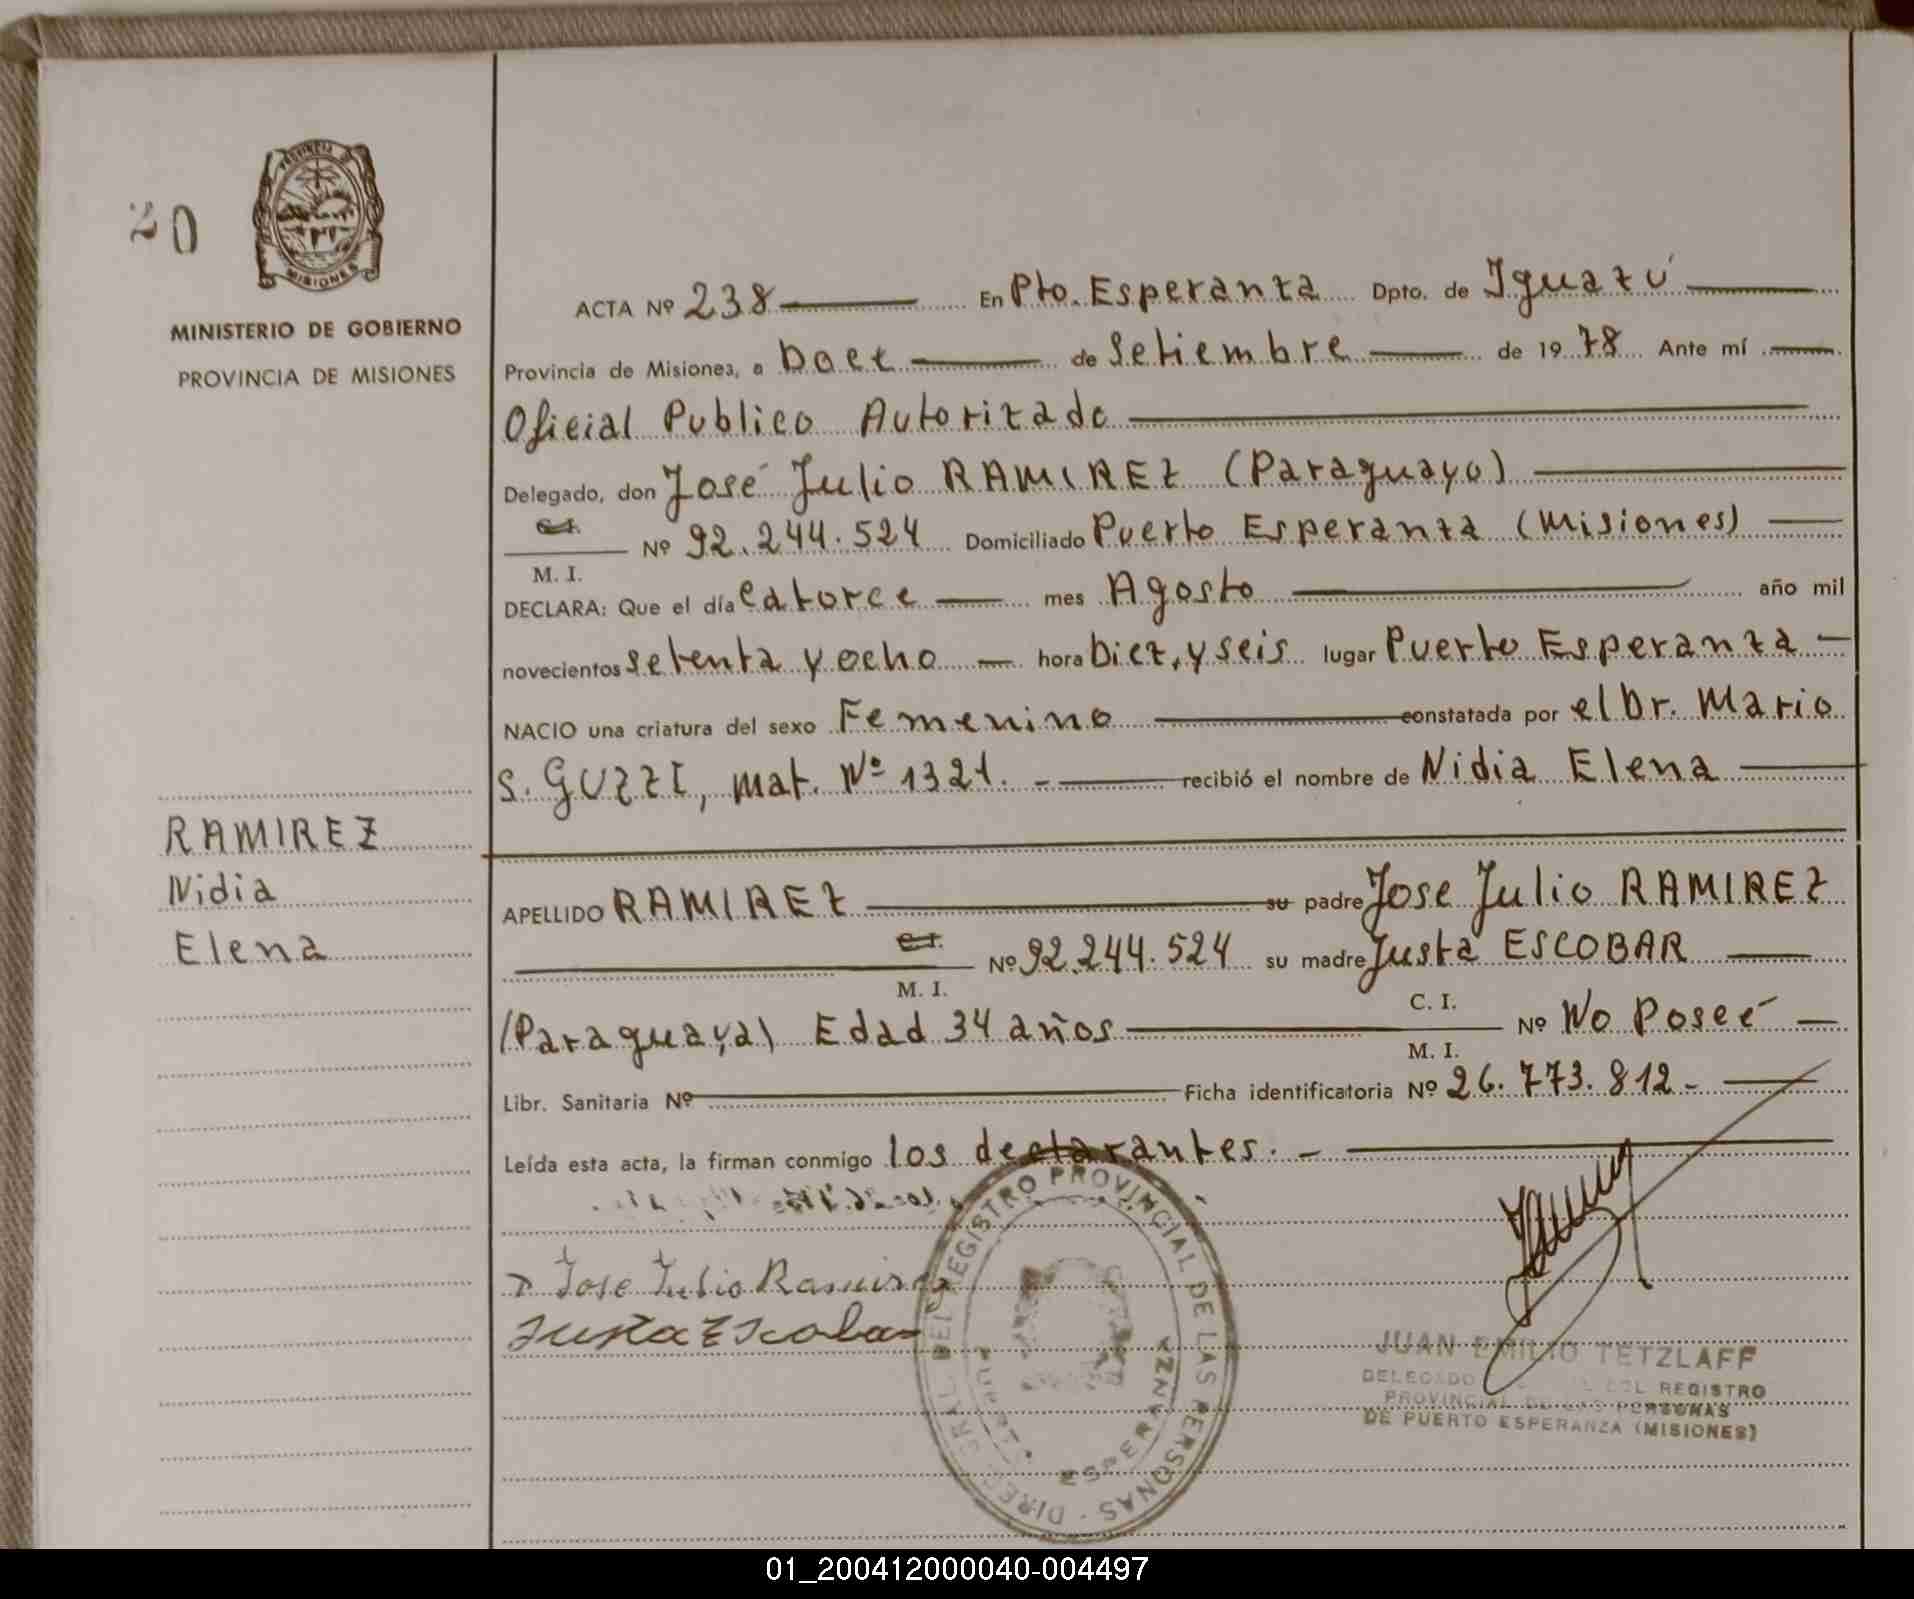 20
PROVINCIA DE
MISIONES
MINISTERIO DE GOBIERNO
PROVINCIA DE MISIONES
RAMIREZ
Nidia
Elena
ACTA Nº 238 En Pto. Esperanza Dpto. de Iguazú
Provincia de Misiones, a Doce de Setiembre de 1978 Ante mí
Oficial Publico Autorizado
Delegado, don José Julio RAMIREZ (Paraguayo)
C.I.
Nº 92.244.524 Domiciliado Puerto Esperanza (Misiones)
M. I.
DECLARA: Que el día catorce mes Agosto año mil
novecientos setenta y ocho hora Diez, y seis lugar Puerto Esperanza
NACIO una criatura del sexo Femenino constatada por el Dr. Mario
S. GUZZI, mat. Nº 1321. - recibió el nombre de Nidia Elena
APELLIDO RAMIREZ su padre Jose Julio RAMIREZ
C.I.
Nº 92.244.524 su madre Justa ESCOBAR
M. I.
(Paraguaya) Edad 34 años C. I. Nº No Poseé
M. I.
Libr. Sanitaria Nº Ficha identificatoria Nº 26.773.812-
Leída esta acta, la firman conmigo los declarantes. -
Jose Julio Ramirez
Justa Escobar
REGISTRO PROVINCIAL DE LAS PERSONAS
ESPERANZA
JUAN EMILIO TETZLAFF
DELEGADO DEL REGISTRO
PROVINCIAL DE LAS PERSONAS
DE PUERTO ESPERANZA (MISIONES)
01_200412000040-004497